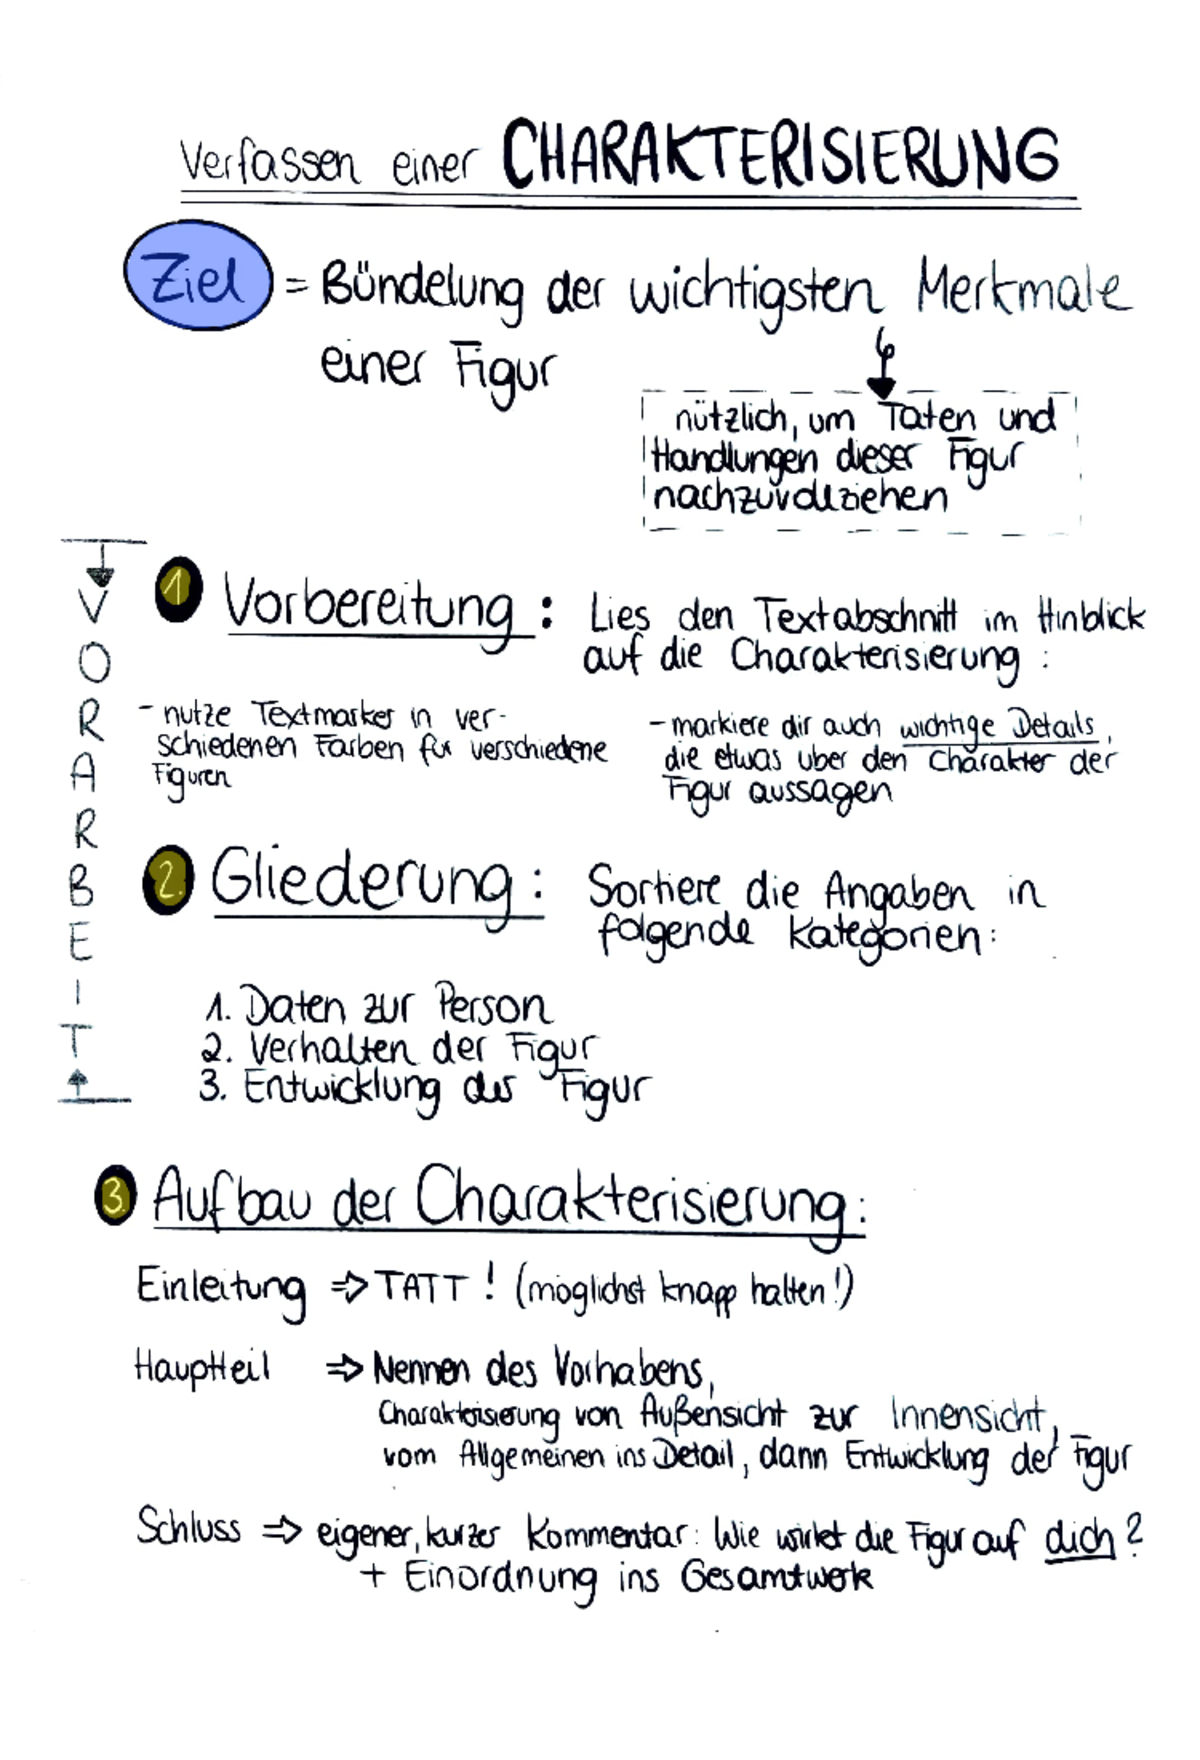 Verfassen einer CHARAKTERISIERUNG
Ziel = Bündelung der wichtigsten Merkmale
einer Figur
nützlich, um Taten und
Handlungen dieser Figur
nachzuvollziehen
VORARBEIT
1 Vorbereitung: Lies den Textabschnitt im Hinblick
auf die Charakterisierung:
- nutze Textmarker in ver-
schiedenen Farben für verschiedene
Figuren
- markiere dir auch wichtige Details,
die etwas über den Charakter der
Figur aussagen
2. Gliederung: Sortiere die Angaben in
folgende Kategorien:
1. Daten zur Person
2. Verhalten der Figur
3. Entwicklung der Figur
3. Aufbau der Charakterisierung:
Einleitung ⇒ TATT! (möglichst knapp halten!)
Hauptteil ⇒ Nennen des Vorhabens,
Charakterisierung von Außensicht zur Innensicht,
vom Allgemeinen ins Detail, dann Entwicklung der Figur
Schluss ⇒ eigener, kurzer Kommentar: Wie wirkt die Figur auf dich?
+ Einordnung ins Gesamtwerk